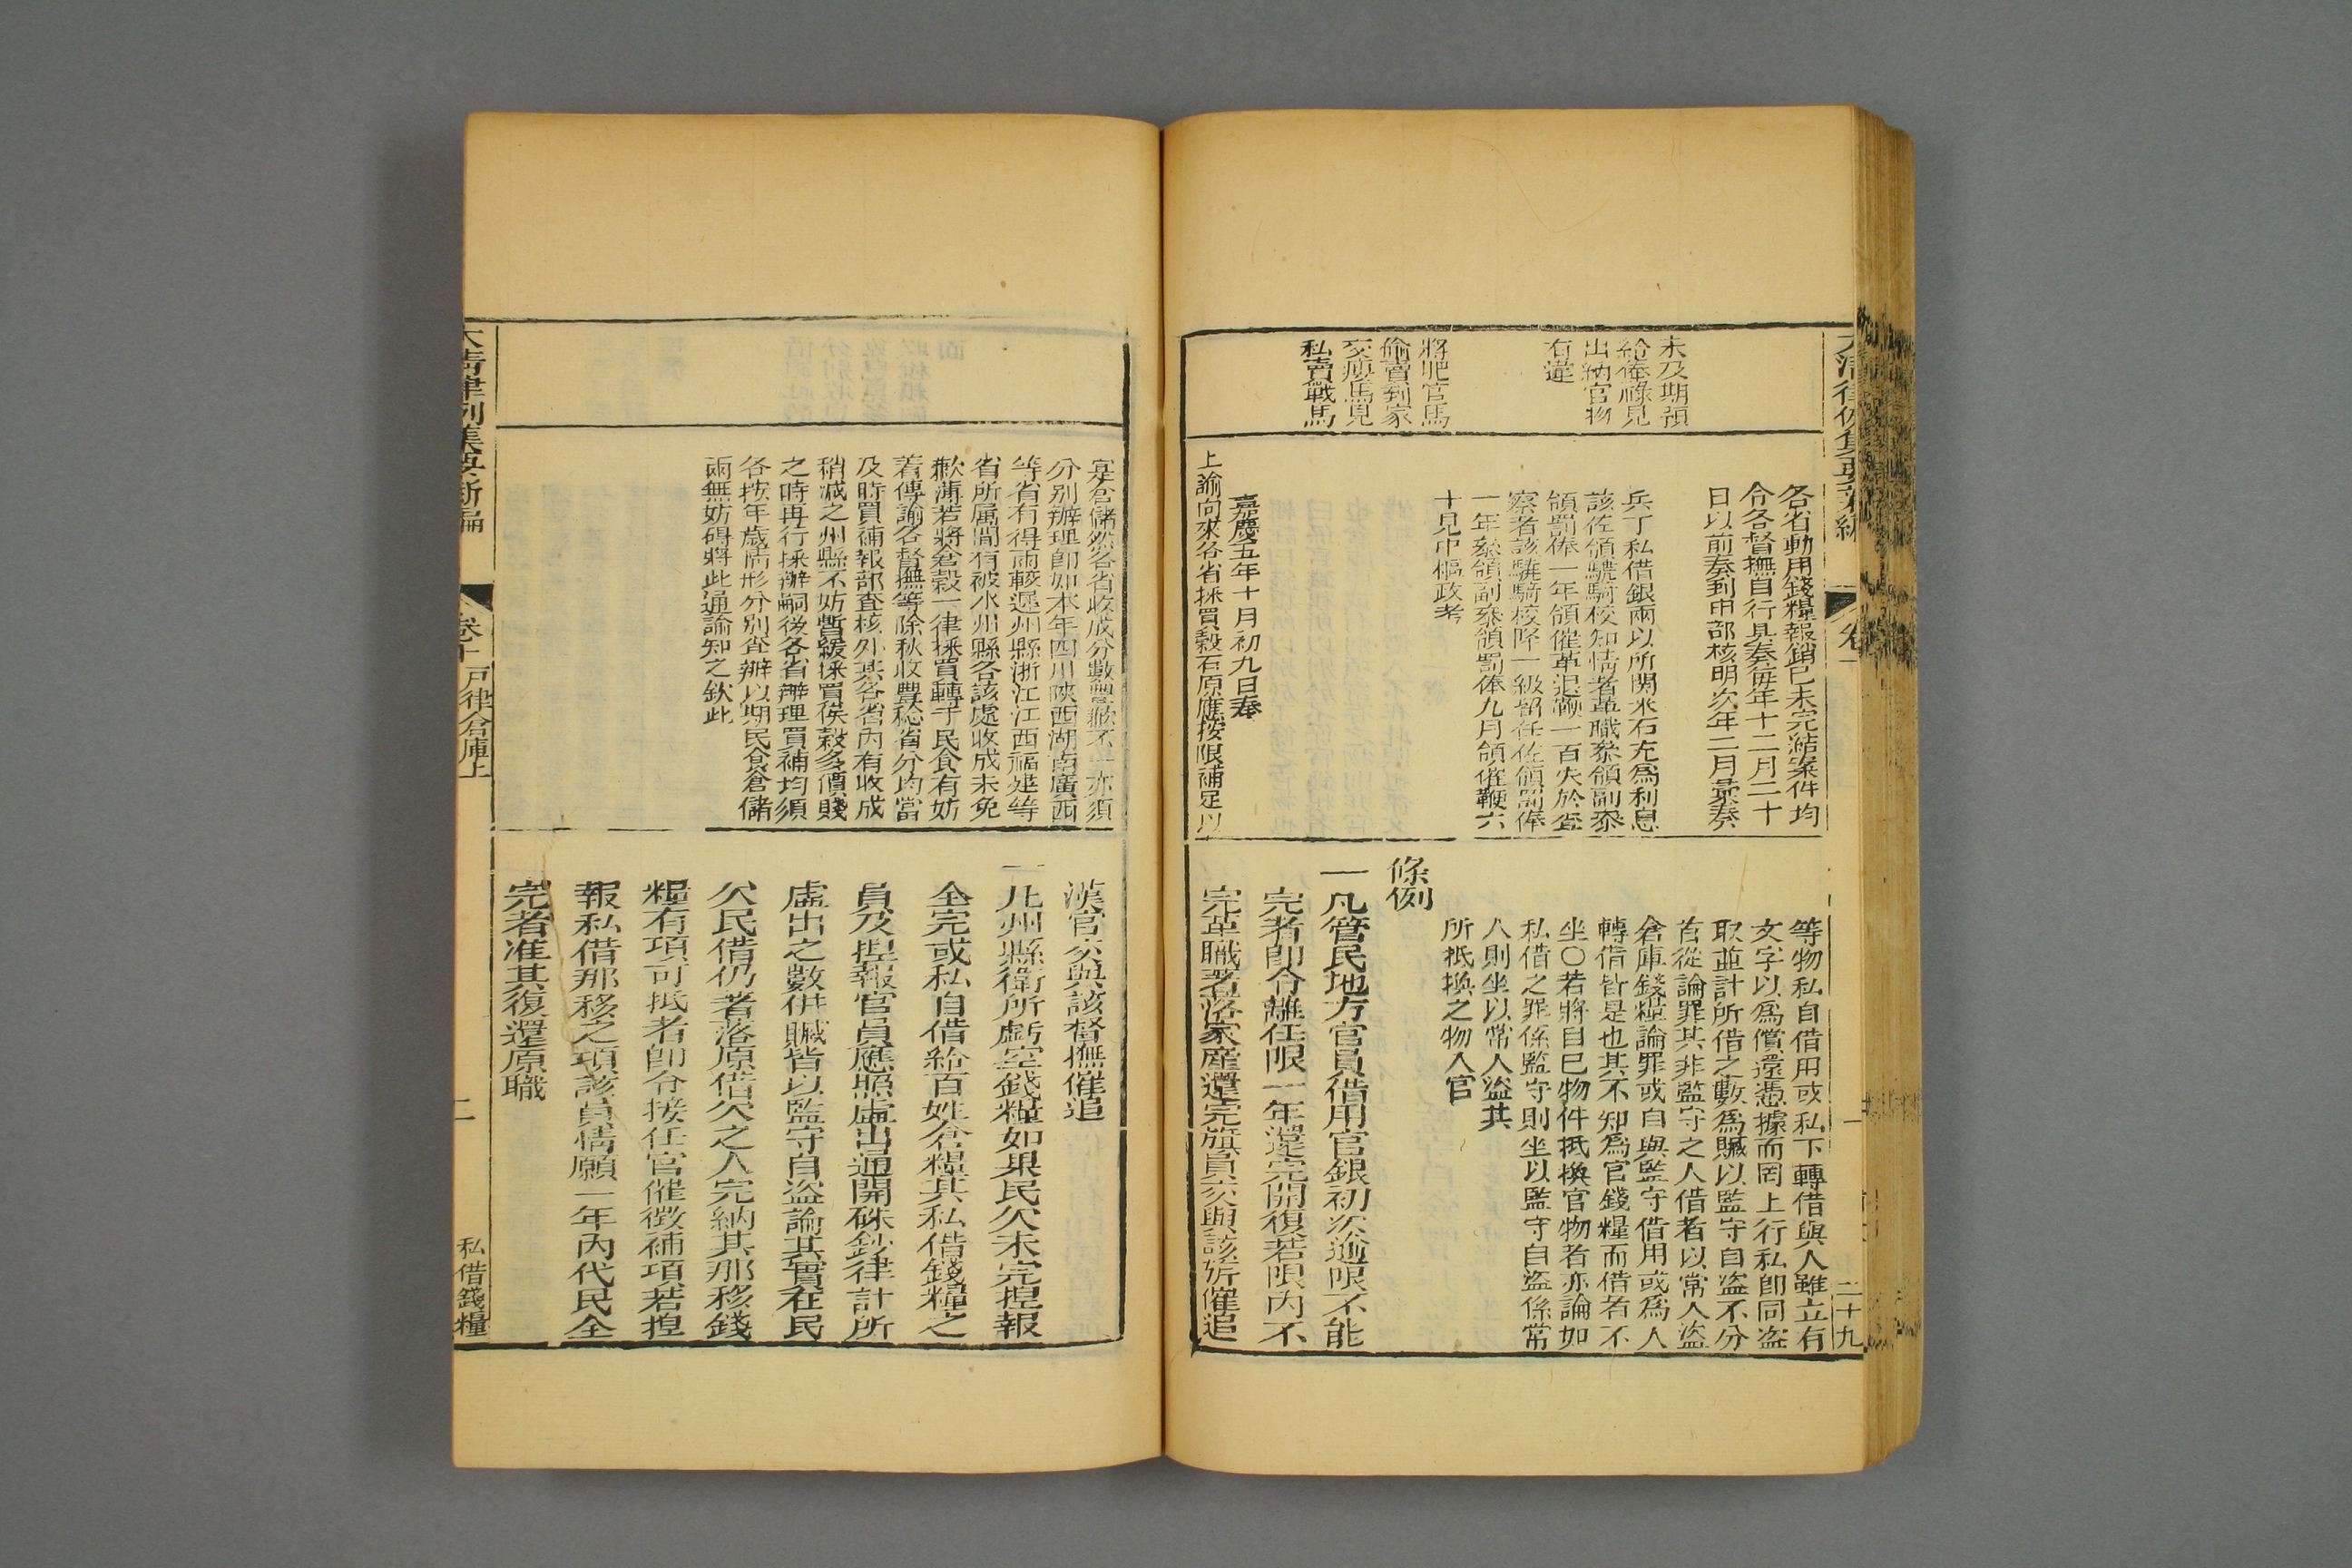 未及期預
給俸祿見
出納官物
有違
將肥官馬
偷賣到家
交瘦馬見
私賣戰馬
各省動用錢糧報銷已未完結案件均
令各督撫自行具奏每年十二月二十
日以前奏到由部核明次年二月彙奏
兵丁私借銀兩以所関米石充為利息
該佐領驍騎校知情者革職叅領副叅
領罰俸一年領催革退鞭一百失於查
察者該驍騎校降一級留任佐領罰俸
一年叅領副叅領罰俸九月領催鞭六
十見中樞政考
嘉慶五年十月初九日奉
上諭向來各省採買穀石原應按限補足以
等物私自借用或私下轉借與人雖立有
文字以為償還憑據而罔上行私卽同盜
取並計所借之數為贓以監守自盜不分
首從論罪其非監守之人借者以常人盜
倉庫錢糧論罪或自與監守借用或為人
轉借皆是也其不知為官錢糧而借者不
坐〇若將自己物件抵換官物者亦論如
私借之罪係監守則坐以監守自盜係常
人則坐以常人盜其
所抵換之物入官
條例
一凡管民地方官員借用官銀初次逾限不能
完者卽令離任限一年還完開復若限内不
完革職著落家產還完旗員交與該旂催追
二十九
寔倉儲然各省收成分數豐歉不一亦須
分別辦理卽如本年四川陝西湖南廣西
等省有得雨較遲州縣浙江江西福建等
省所屬間有被水州縣各該處收成未免
歉薄若將倉穀一律採買轉于民食有妨
着傳諭各督撫等除秋收豐稔省分均當
及時買補報部查核外其各省內有收成
稍減之州縣不妨暫緩採買俟穀多價賤
之時再行採辦嗣後各省辦理買補均須
各按年歲情形分別查辦以期民食倉儲
兩無妨碍將此通諭知之欽此
漢官交與該督撫催追
一凡州縣衛所虧空錢糧如果民欠未完捏報
全完或私自借給百姓倉糧其私借錢糧之
員及捏報官員應照虛出通關硃鈔律計所
虛出之數併贓皆以監守自盜論其實在民
欠民借仍著落原借欠之人完納其那移錢
糧有項可抵者卽令接任官催徵補項若捏
報私借那移之項該員情願一年內代民全
完者准其復還原職
大清律例集要新編
卷十 戶律倉庫上
私借錢糧